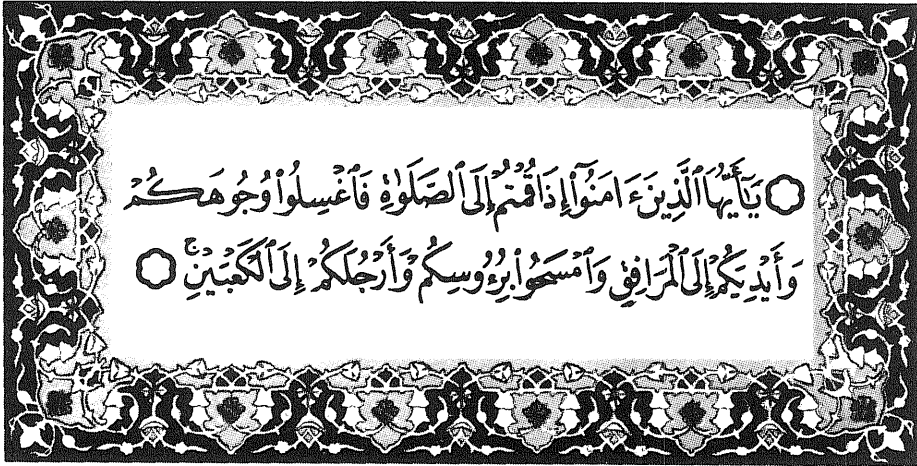 يَٰٓأَيُّهَا ٱلَّذِينَ ءَامَنُوٓا۟ إِذَا قُمْتُمْ إِلَى ٱلصَّلَوٰةِ فَٱغْسِلُوا۟ وُجُوهَكُمْ
وَأَيْدِيَكُمْ إِلَى ٱلْمَرَافِقِ وَٱمْسَحُوا۟ بِرُءُوسِكُمْ وَأَرْجُلَكُمْ إِلَى ٱلْكَعْبَيْنِ ۚ